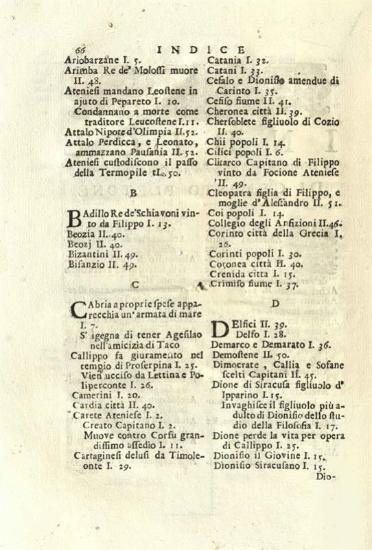 66 INDICE
Ariobarzane I. 5.
Arimba Re de' Molossi muore
II. 48.
Ateniesi mandano Leostene in
ajuto di Pepareto I. 10.
Condannano a morte come
traditore Leucostene I. 11.
Attalo Nipote d'Olimpia II. 52.
Attalo Perdicca, e Leonato,
ammazzano Pausania II. 52.
Ateniesi custodiscono il passo
della Termopile II. 50.
B
BAdillo Re de' Schiavoni vin-
to da Filippo I. 13.
Beozia II. 40.
Beozj II. 40.
Bizantini II. 49.
Bisanzio II. 49.
C
CAbria a proprie spese appa-
recchia un'armata di mare
I. 7.
S' igegna di tener Agesilao
nell'amicizia di Taco
Callippo fa giuramento nel
tempio di Proserpina I. 25.
Vien ucciso da Lettina e Po-
liperconte I. 26.
Camerini I. 20.
Cardia città II. 40.
Carete Ateniese I. 2.
Creato Capitano I. 2.
Muove contro Corfu gran-
dissimo assedio I. 11.
Cartaginesi delusi da Timole-
onte I. 29.
Catania I. 32.
Catani I. 33.
Cefalo e Dionisio amendue di
Carinto I. 35.
Cefiso fiume II. 41.
Cheronea città II. 39.
Chersoblete figliuolo di Cozio
II. 40.
Chii popoli I. 14.
Cilici popoli I. 6.
Clitarco Capitano di Filippo
vinto da Focione Ateniese
II. 49.
Cleopatra figlia di Filippo, e
moglie d'Alessandro II. 51.
Coi popoli I. 14.
Collegio degli Anfizioni II. 46.
Corinto città della Grecia I.
26.
Corinti popoli I. 30.
Coronea città II. 40.
Crenida città I. 15.
Crimiso fiume I. 37.
D
DElfici II. 39.
Delfo I. 28.
Demarco e Demarato I. 36.
Demostene II. 50.
Dimocrate, Callia e Sofane
scelti Capitani II. 45.
Dione di Siracusa figliuolo d'
Ipparino I. 15.
Invaghisce il figliuolo più a-
dulto di Dionisio dello stu-
dio della Filosofia I. 17.
Dione perde la vita per opera
di Callippo I. 25.
Dionisio il Giovine I. 15.
Dionisio Siracusano I. 15.
Dio-